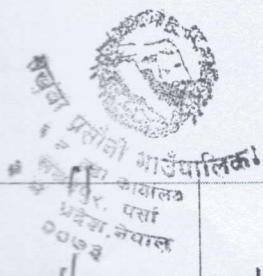 सखुवा प्रसौनी गाउँपालिका
वडा कार्यालय
पर्सा
प्रदेश, नेपाल
२०७३